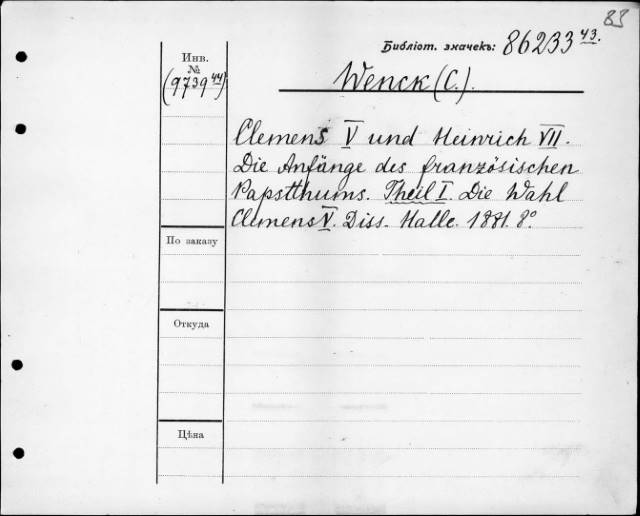 83
Библіот. значекъ: 86233 43.
Инв.
№
(9739 44)
Wenck (C.).
Clemens V und Heinrich VII.
Die Anfänge des französischen
Papstthums. Theil I. Die Wahl
Clemens V. Diss. Halle. 1881. 8°.
По заказу
Откуда
Цѣна